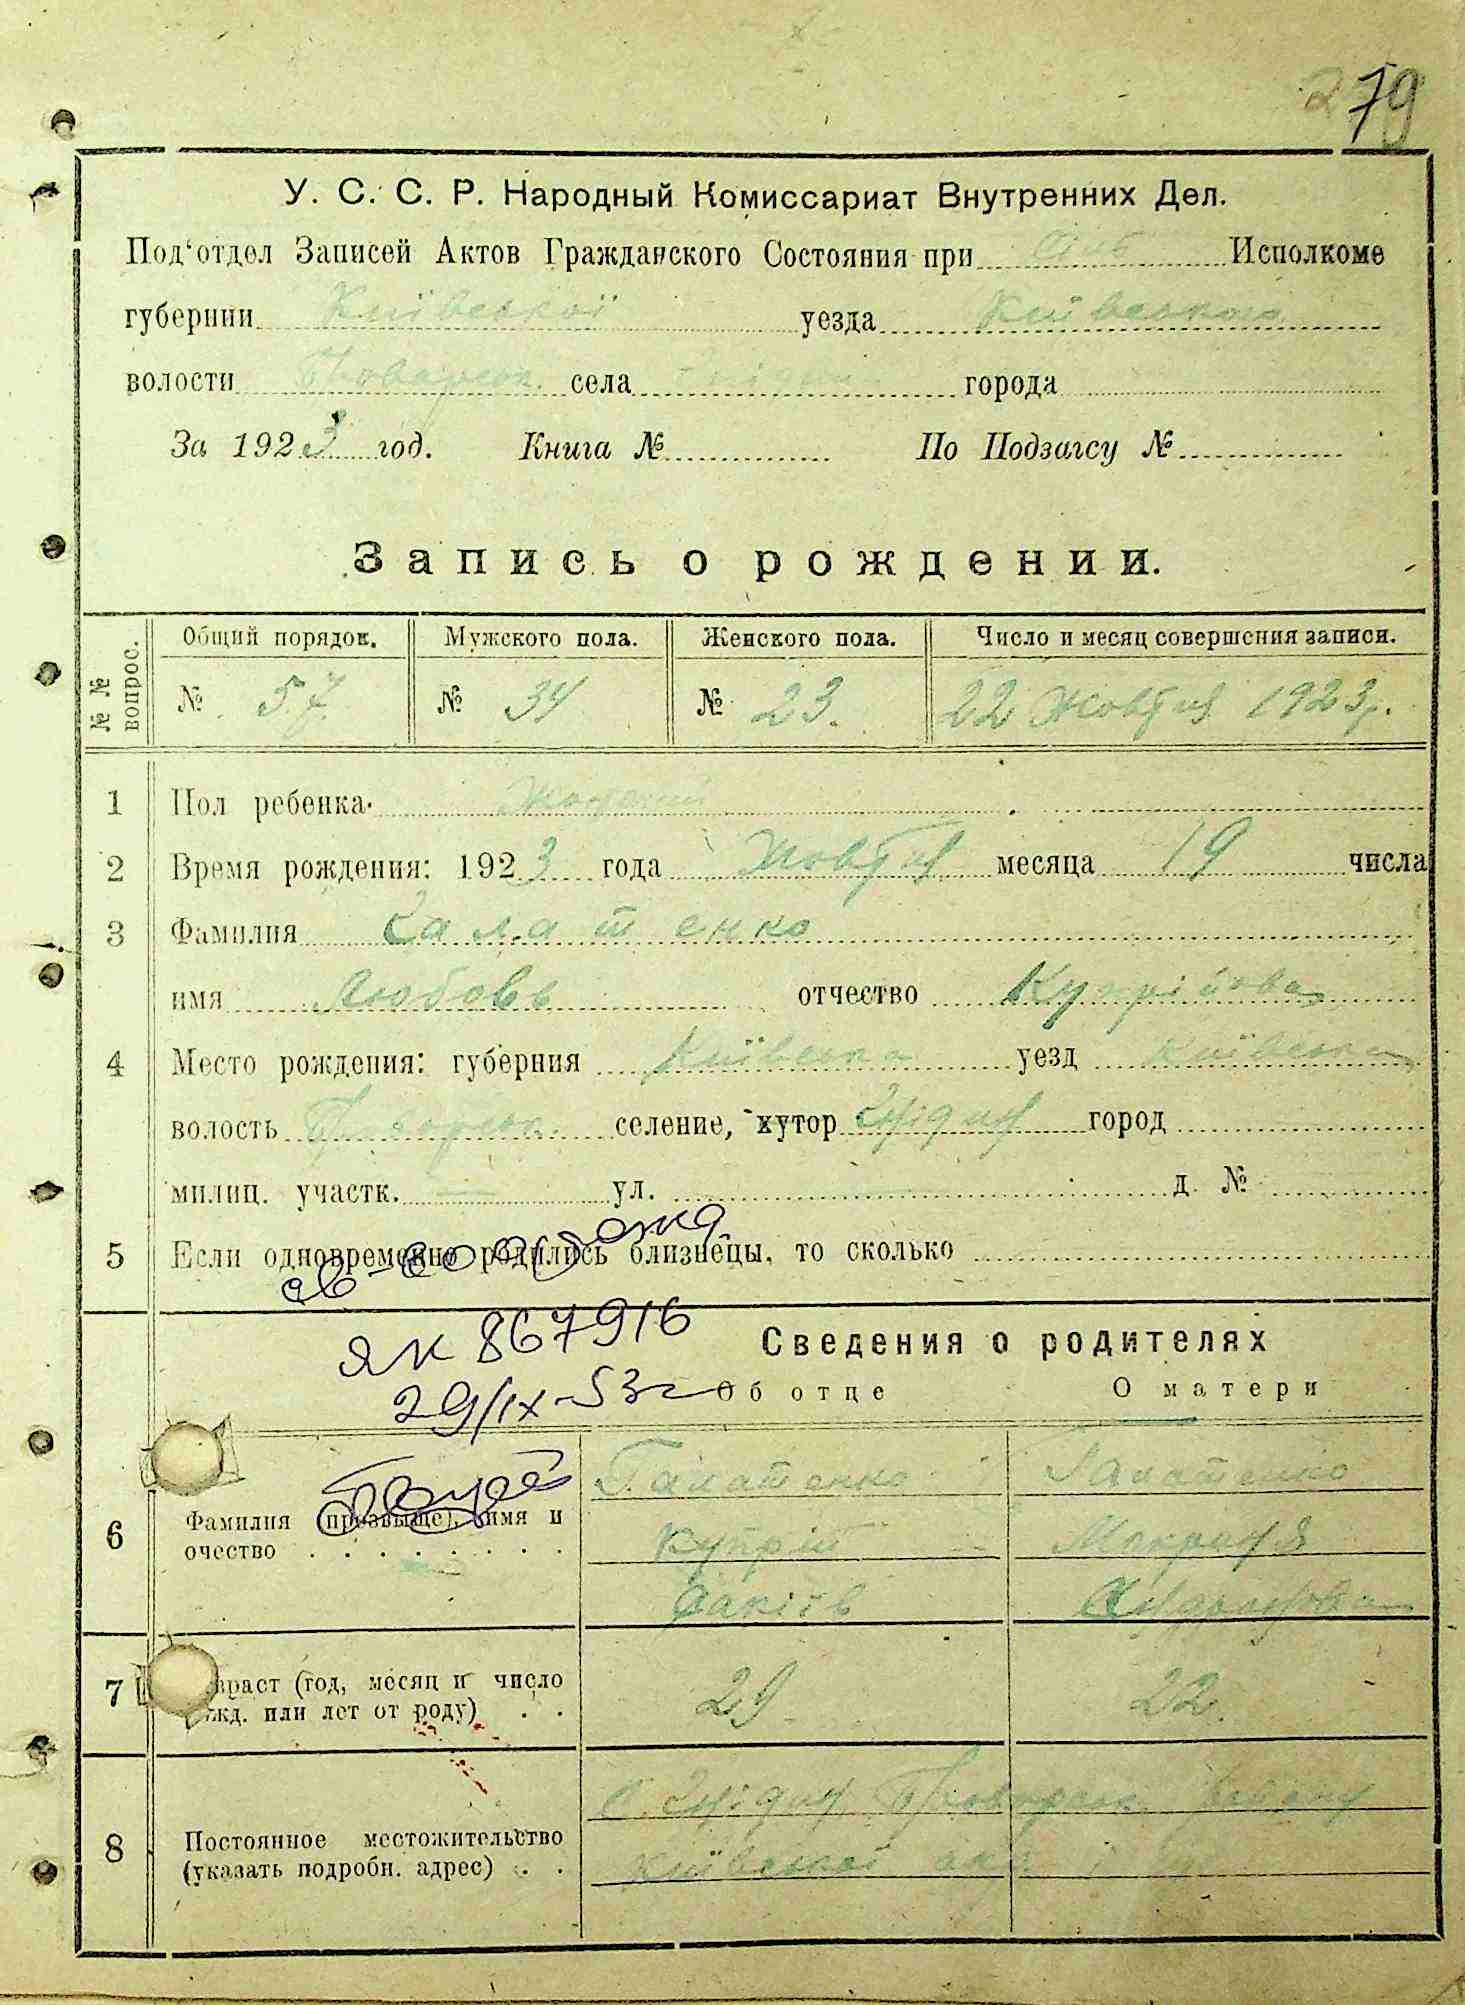 279
У. С. С. Р. Народный Комиссариат Внутренних Дел.
Под'отдел Записей Актов Гражданского Состояния при Исполкоме
губернии Київської уезда Київського
волости села города
За 1923 год. Книга № По Подзагсу №
Запись о рождении.
№ № вопрос. Общий порядок. Мужского пола. Женского пола. Число и месяц совершения записи.
№ 57 № 34 № 23. 22 Жовтня 1923р.
1 Пол ребенка
2 Время рождения: 1923 года Жовтня месяца 19 числа
3 Фамилия Галатенко
имя Любовь отчество Купріїова
4 Место рождения: губерния Київська уезд Київська
волость селение, хутор Гнідин город
милиц. участк. ул. д. №
5 Если одновременно родились близнецы, то сколько
ЯК 867916
29/IX-53г
Сведения о родителях
Об отце О матери
6 Фамилия (прозвыще), имя и очество Галатенко Галатенко
Купрій Макрина
7 враст (год, месяц и число жд. или лет от роду) 29 22.
8 Постоянное местожительство (указать подробн. адрес) с. Гнідин району
Київської